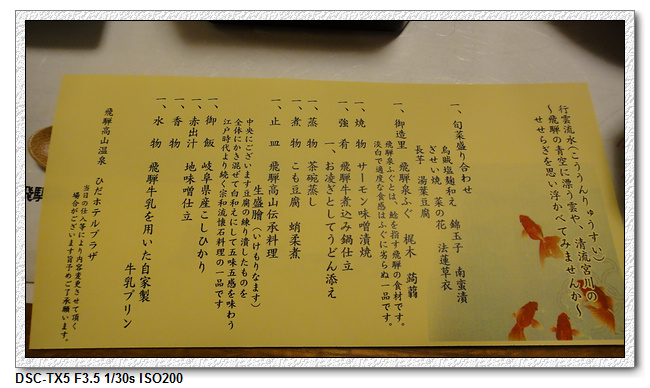 行雲流水（こううんりゅうすい）
～飛騨の青空に漂う雲や、清流宮川の
せせらぎを思い浮かべてみませんか～
一、旬菜盛り合わせ
烏賊塩麹和え 錦玉子 南蛮漬
ぎせい焼 菜の花 法蓮草衣
長芋 湯葉豆腐
一、御造里 飛騨泉ふぐ 梶木 蒟蒻
飛騨泉ふぐとは、鯰を指す飛騨の食材です。
淡白で適度な食感はふぐに劣らぬ一品です。
一、焼 物 サーモン味噌漬焼
一、強 肴 飛騨牛煮込み鍋仕立
一、お凌ぎとしてうどん添え
一、蒸 物 茶碗蒸し
一、煮 物 こも豆腐 蛸柔煮
一、止 皿 飛騨高山伝承料理
生盛膾（いけもりなます）
中央にございます豆腐の練り潰したものを
全体にかき混ぜて白和えにして五味五感を味わう
江戸時代より続く宗和流懐石料理の一品です
一、御 飯 岐阜県産こしひかり
一、赤出汁 地味噌仕立
一、香 物
一、水 物 飛騨牛乳を用いた自家製
牛乳プリン
飛騨高山温泉 ひだホテルプラザ
当日の仕入等により内容変更させて頂く
場合がございます旨予めご了承願います。
DSC-TX5 F3.5 1/30s ISO200